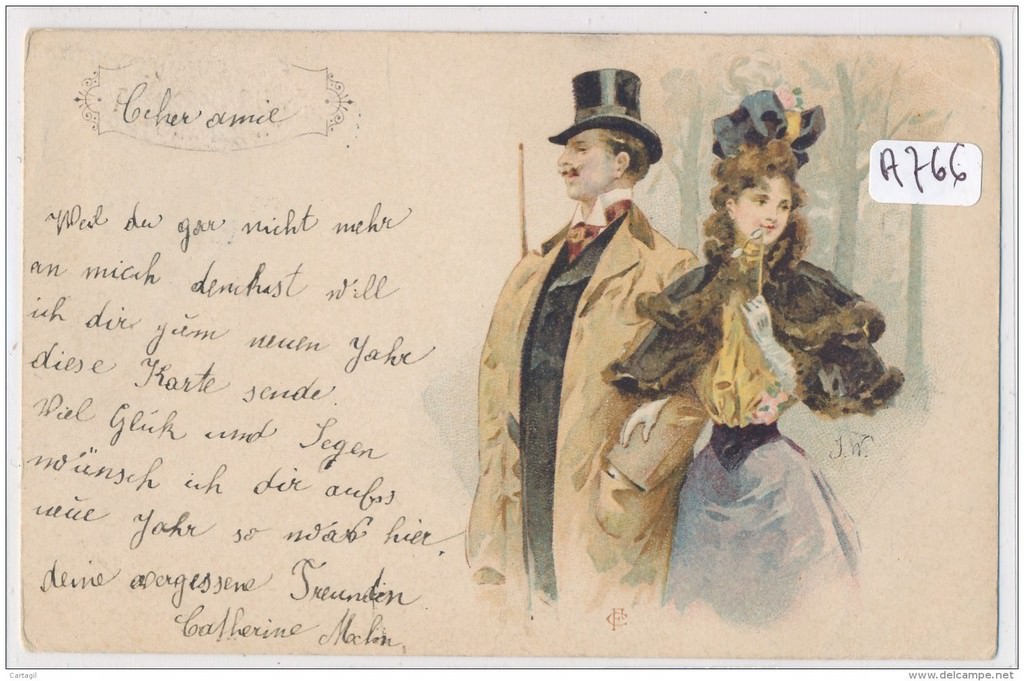 Ccher amie
A766
Weil du gar nicht mehr
an micch denkast will
ich dir zum neuen Jahr
diese Karte sende.
Viel Glük und Segen
wünsch ich dir aufss
neue Jahr so hier
deine vergessene Freundin
Catherine
J.W.
Cartagil
www.delcampe.net